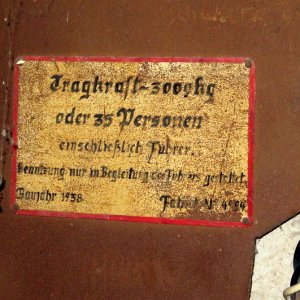 Tragkraft-3000kg
oder 35 Personen
einschließlich Führer.
Benutzung nur in Begleitung des Führers gestattet.
Baujahr 1938 Fabrik Nr